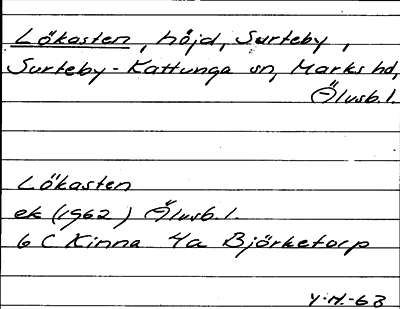 Lökasten, höjd, Surteby,
Surteby-Kattunga sn, Marks hd,
Älvsb.l.
Lökasten
ek (1962) Älvsb.l.
6 C Kinna 4a Björketorp
Y.H.-63